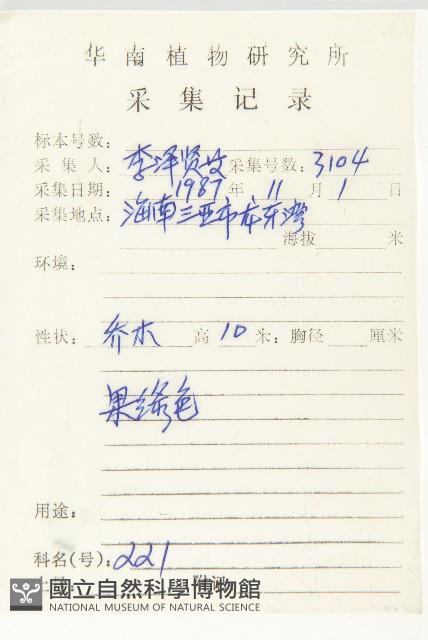 华南植物研究所
采集记录
标本号数:
采集人: 李泽贤 采集号数: 3104
采集日期: 1987 年 11 月 1 日
采集地点: 海南三亚市 东湾
海拔 米
环境:
性状: 乔木 高 10 米; 胸径 厘米
果绿色
用途:
科名(号): 221
國立自然科學博物館
NATIONAL MUSEUM OF NATURAL SCIENCE